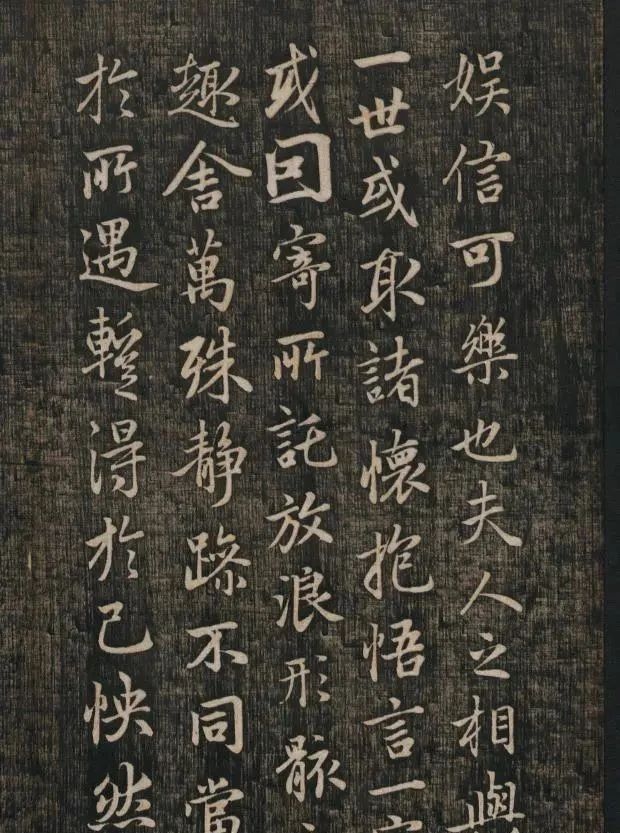 娱信可樂也夫人之相與
一世或取諸懷抱悟言一
或因寄所託放浪形骸
趣舍萬殊静躁不同當
於所遇暫得於己怏然